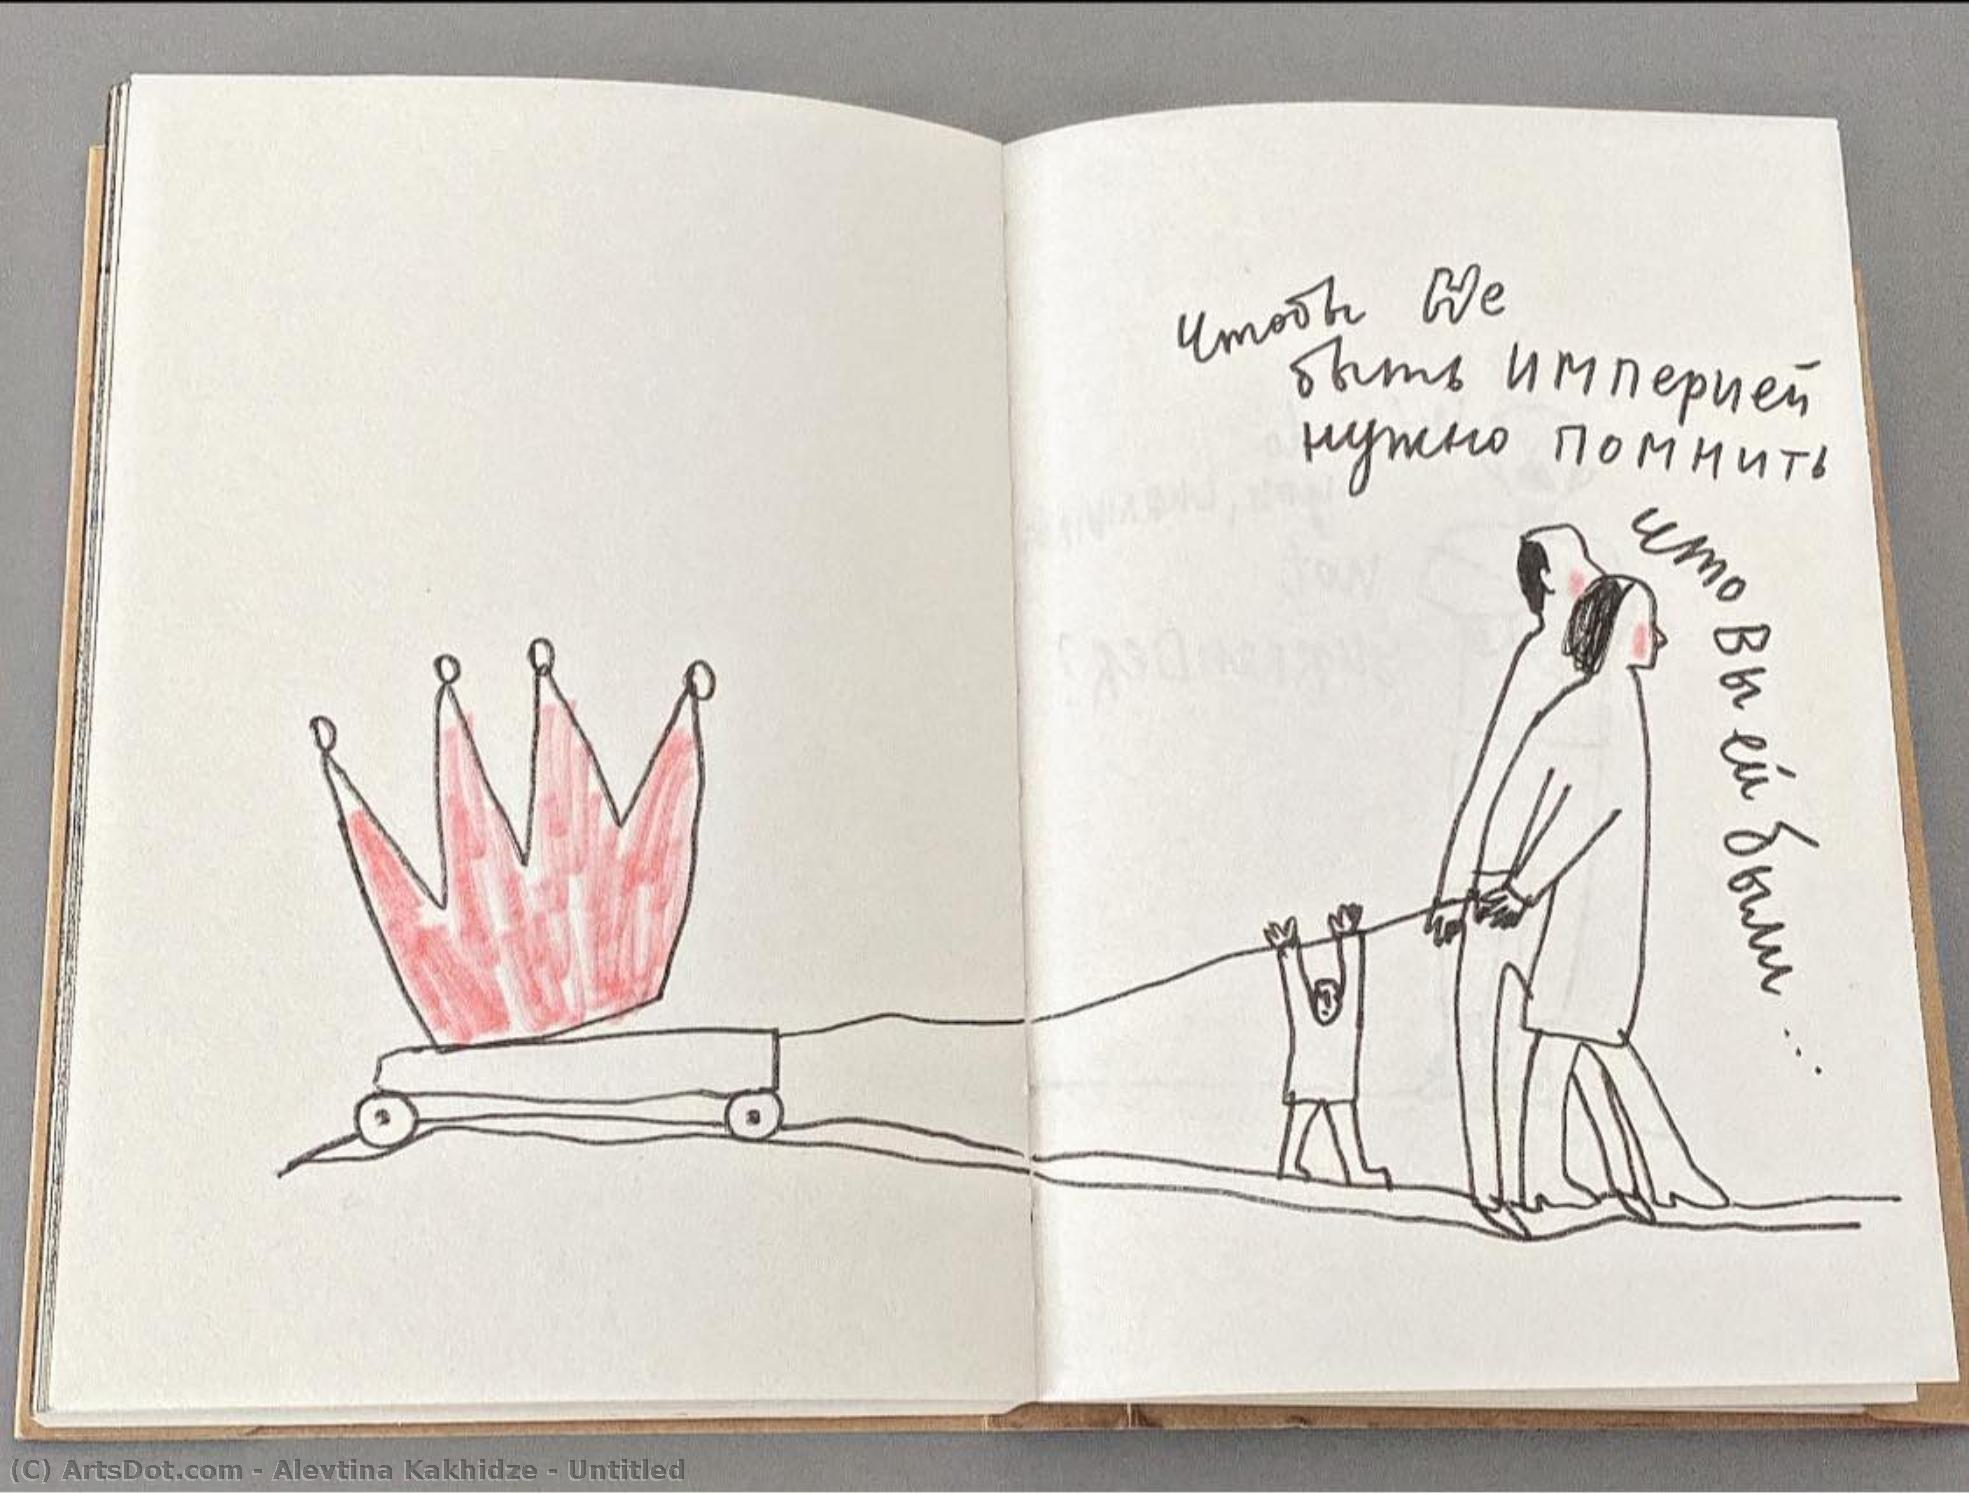 чтобы Не
быть империей
нужно помнить
что вы ей были...
(C) ArtsDot.com - Alevtina Kakhidze - Untitled